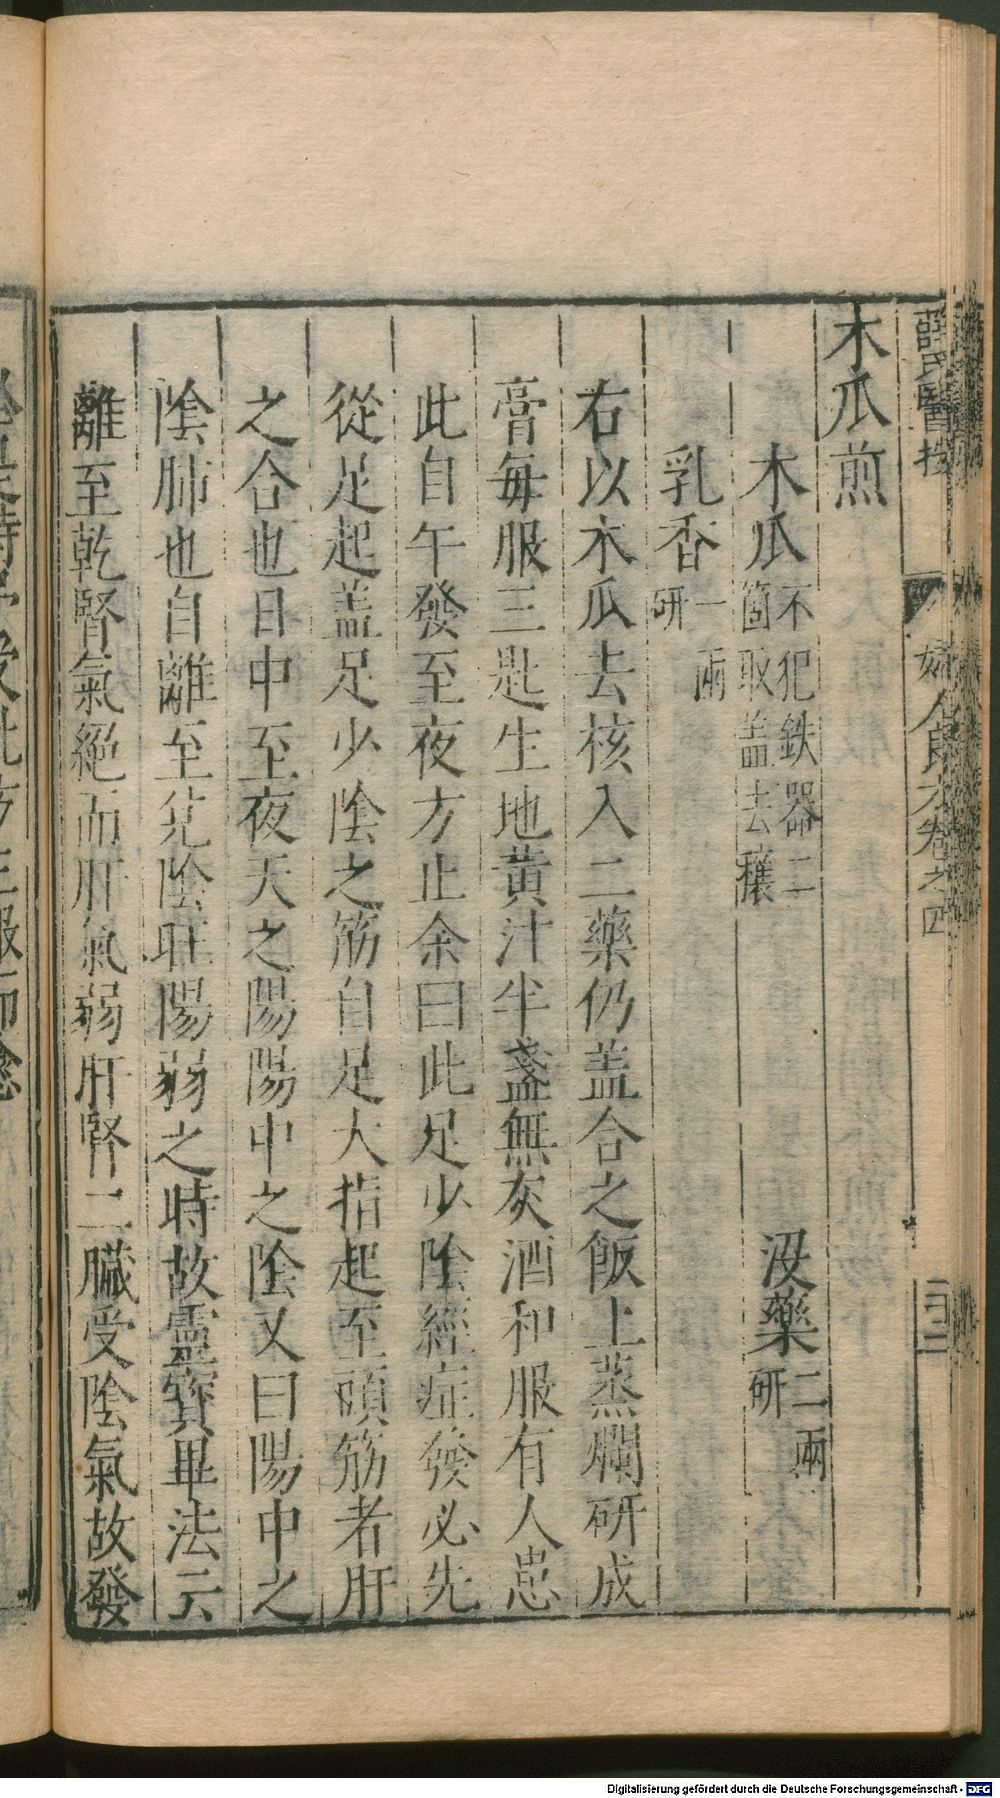 薛氏醫按 婦人良方卷之四 二十二
木瓜煎
木瓜 不犯鉄器二箇取盖去穰 没藥 二兩研
乳香 一兩研
右以木瓜去核入二藥仍盖合之飯上蒸爛研成
膏每服三匙生地黄汁半盞無灰酒和服有人患
此自午發至夜方止余曰此足少陰經症發必先
從足起盖足少陰之筋自足大指起至頭筋者肝
之合也日中至夜天之陽陽中之陰又曰陽中之
陰肺也自離至兊陰旺陽弱之時故靈寳畢法云
離至乾腎氣絕而肝氣弱肝腎二臟受陰氣故發
Digitalisierung gefördert durch die Deutsche Forschungsgemeinschaft - DFG